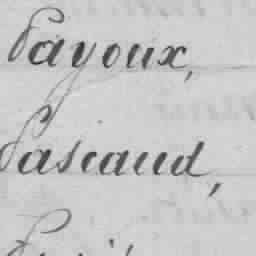 Payoux,
Pascaud,